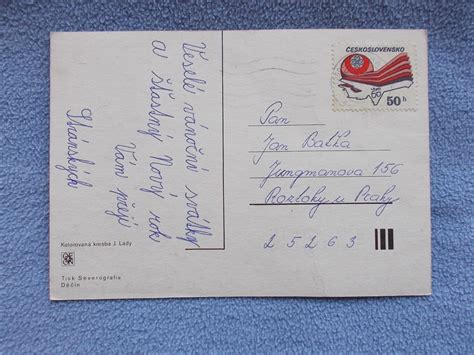 Veselé vánoční svátky
a šťastný Nový rok
Vám přejí
Kolorovaná kresba J. Lady
Tisk Severografia
Děčín
ČESKOSLOVENSKO
50 h
Pan
Jan Baťka
Jungmanova 156
Roztoky u Prahy
25263